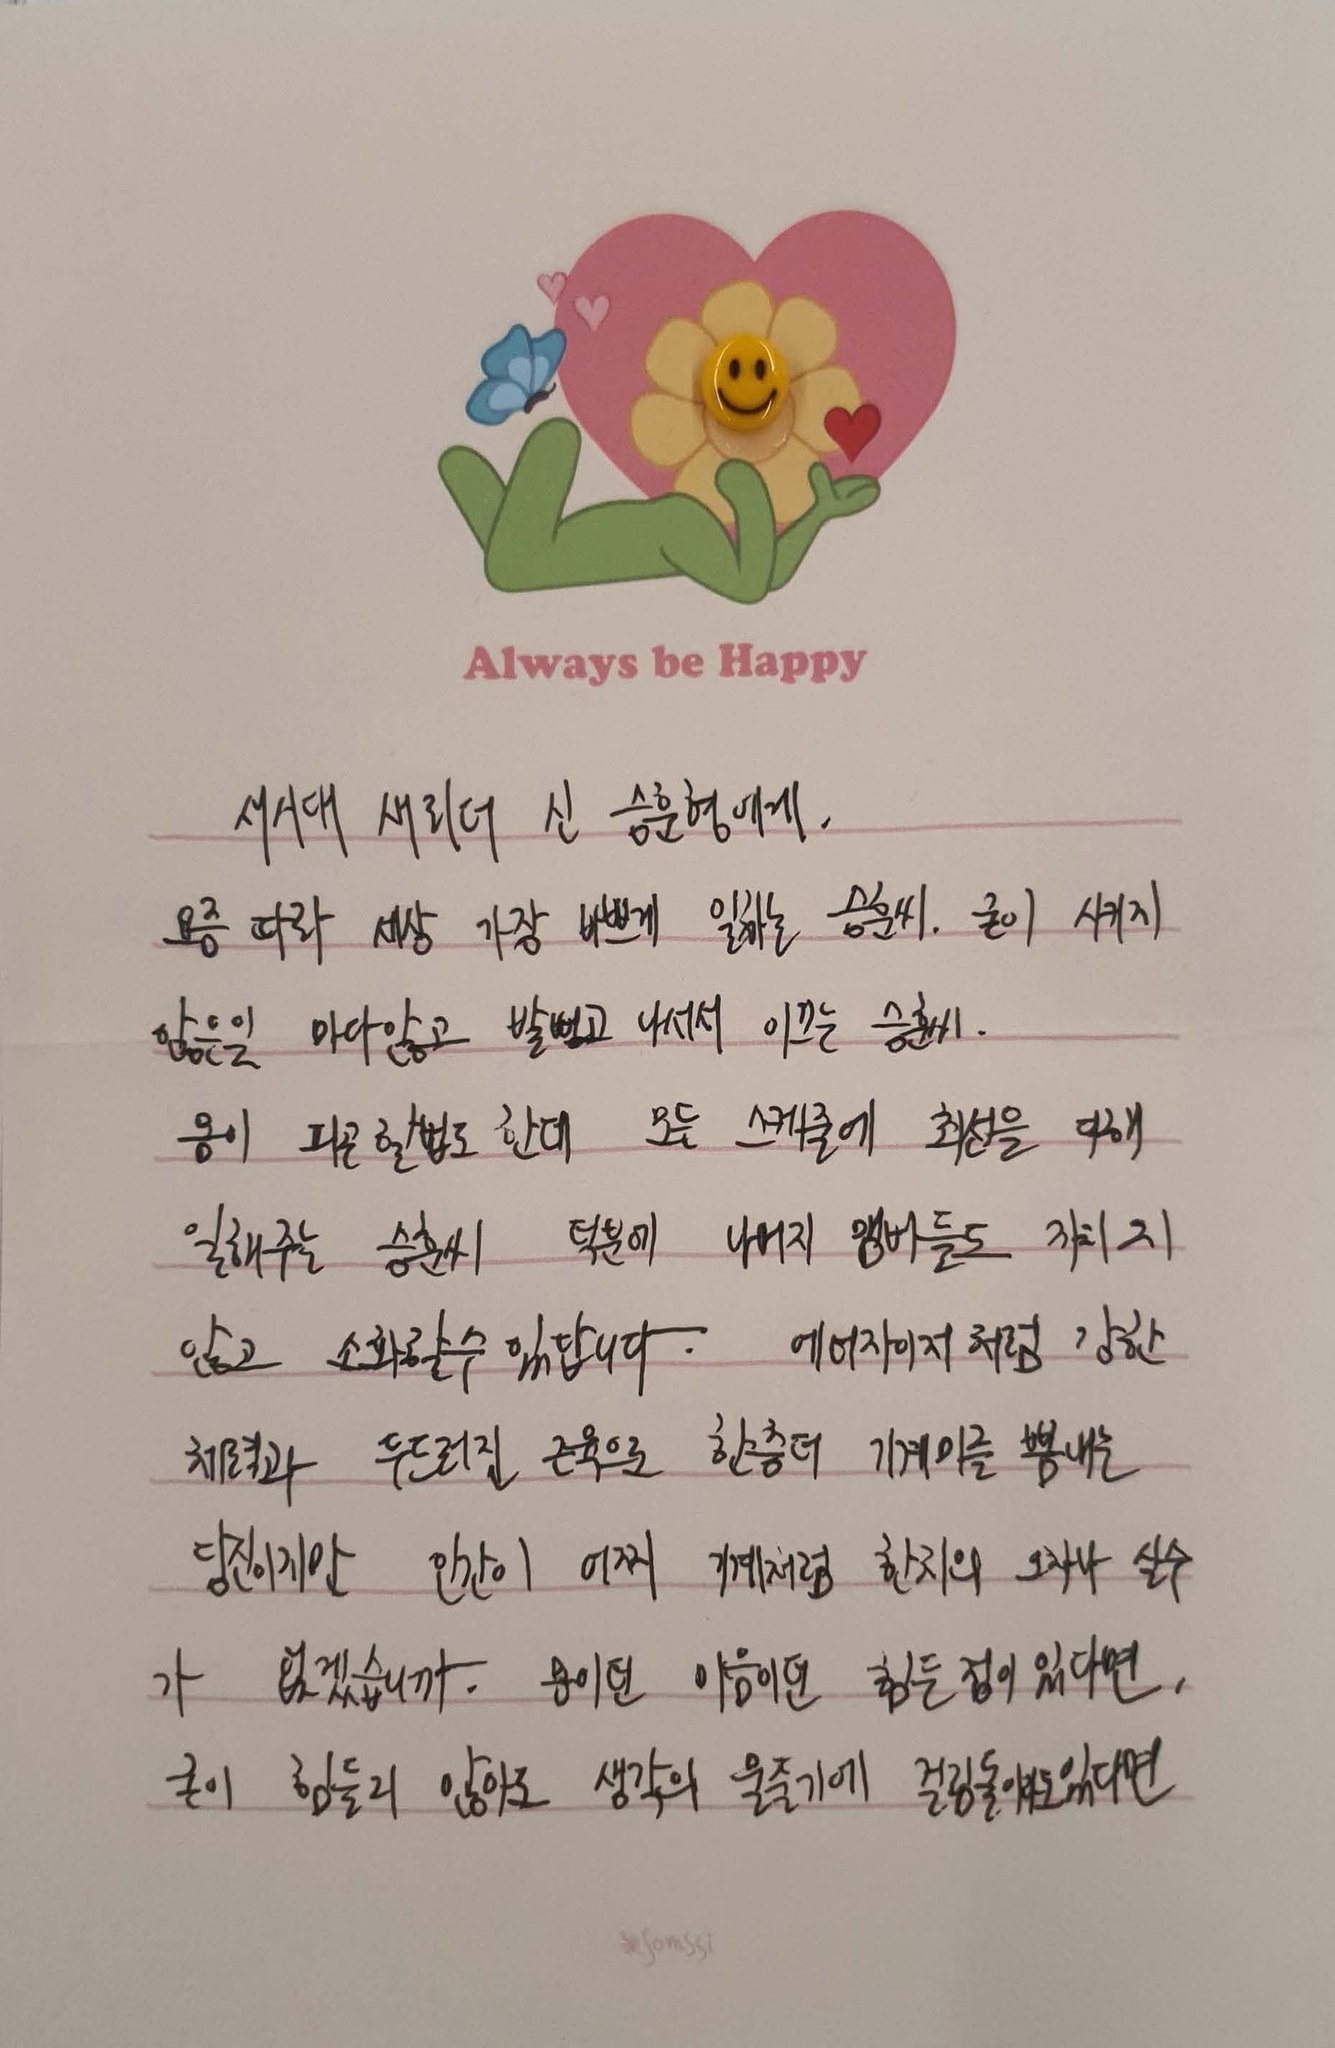 Always be Happy
새시대 새리더 신 승훈형에게,
요즘 따라 세상 가장 바쁘게 일하는 승훈씨. 굳이 시키지
않은일 마다않고 발뻗고 나서서 이끄는 승훈씨.
몸이 피곤할법도 한데 모든 스케줄에 최선을 다해
일해주는 승훈씨 덕분에 나머지 멤버들도 지치지
않고 소화할수 있답니다. 에너자이저처럼 강한
체력과 두드러진 근육으로 한층더 기계미를 뽐내는
당신이지만 인간이 어찌 기계처럼 한치의 오차나 실수
가 없겠습니까. 몸이던 마음이던 힘든점이 있다면,
굳이 힘들지 않아도 생각의 물줄기에 걸림돌이라도있다면
somssi